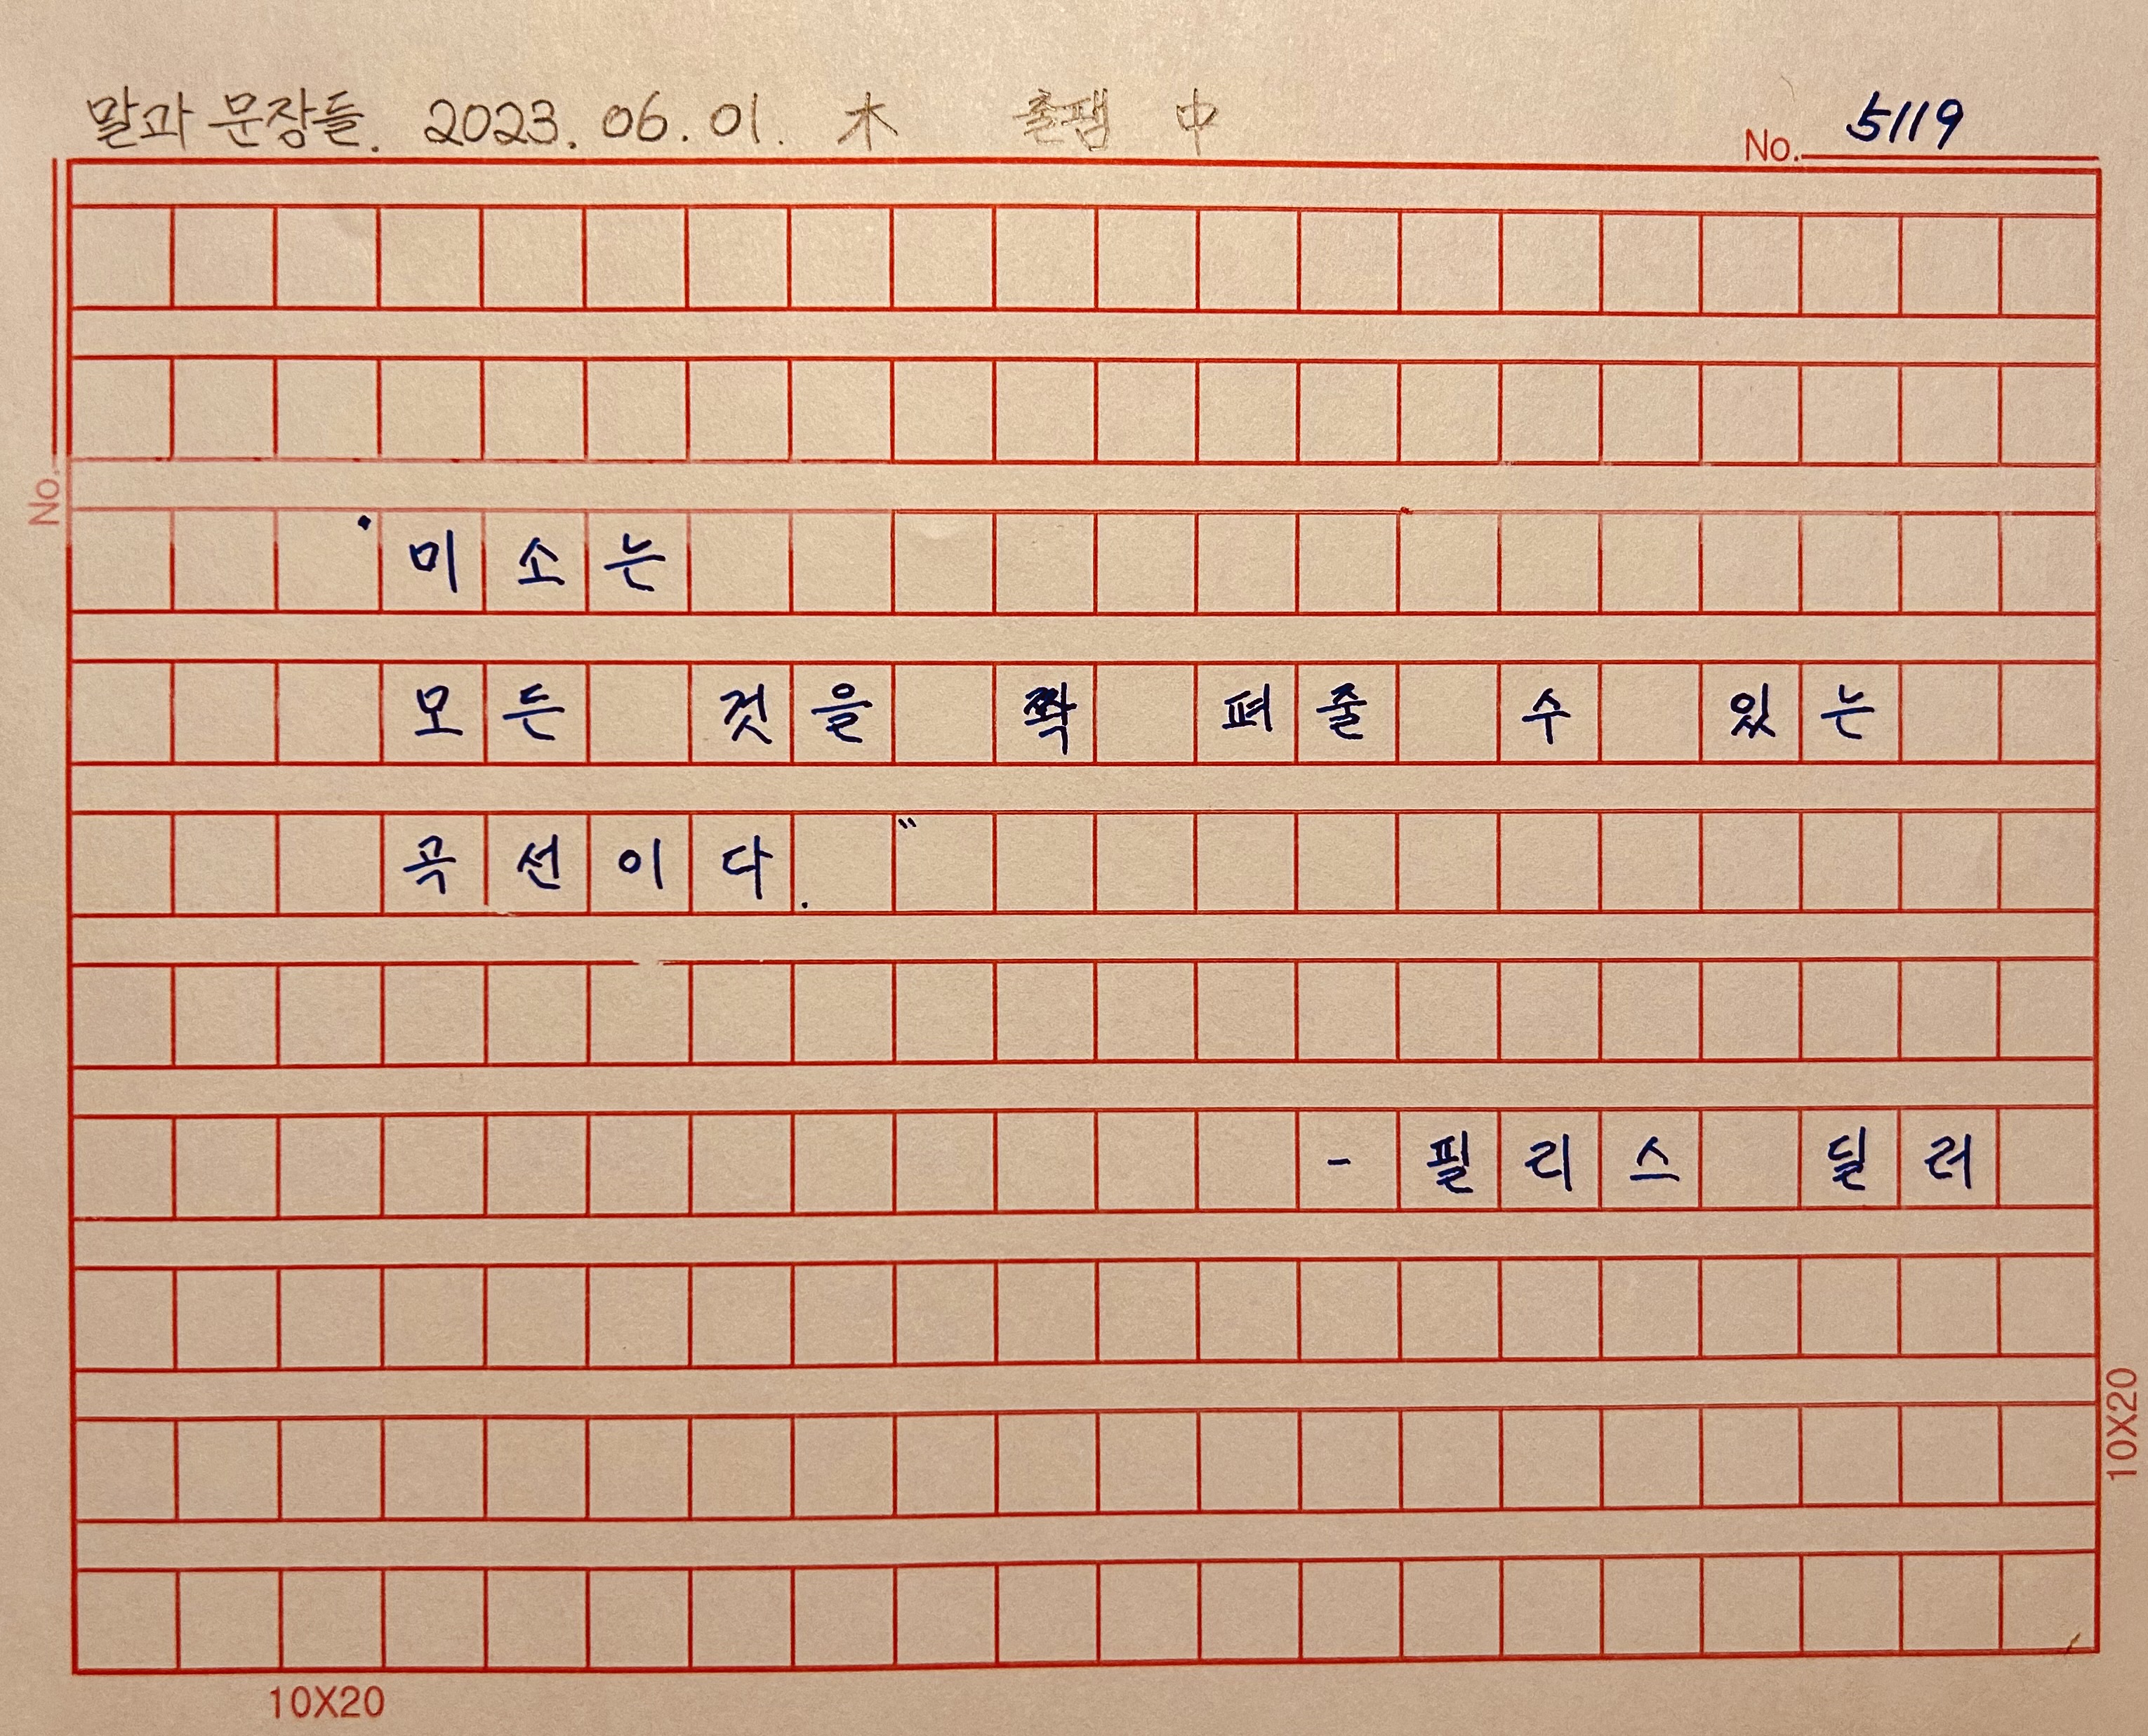 말과 문장들. 2023. 06. 01. 木 출팸 中
No. 5119
No.
"미소는
모든 것을 쫙 펴줄 수 있는
곡선이다."
- 필리스 딜러
10X20
10X20